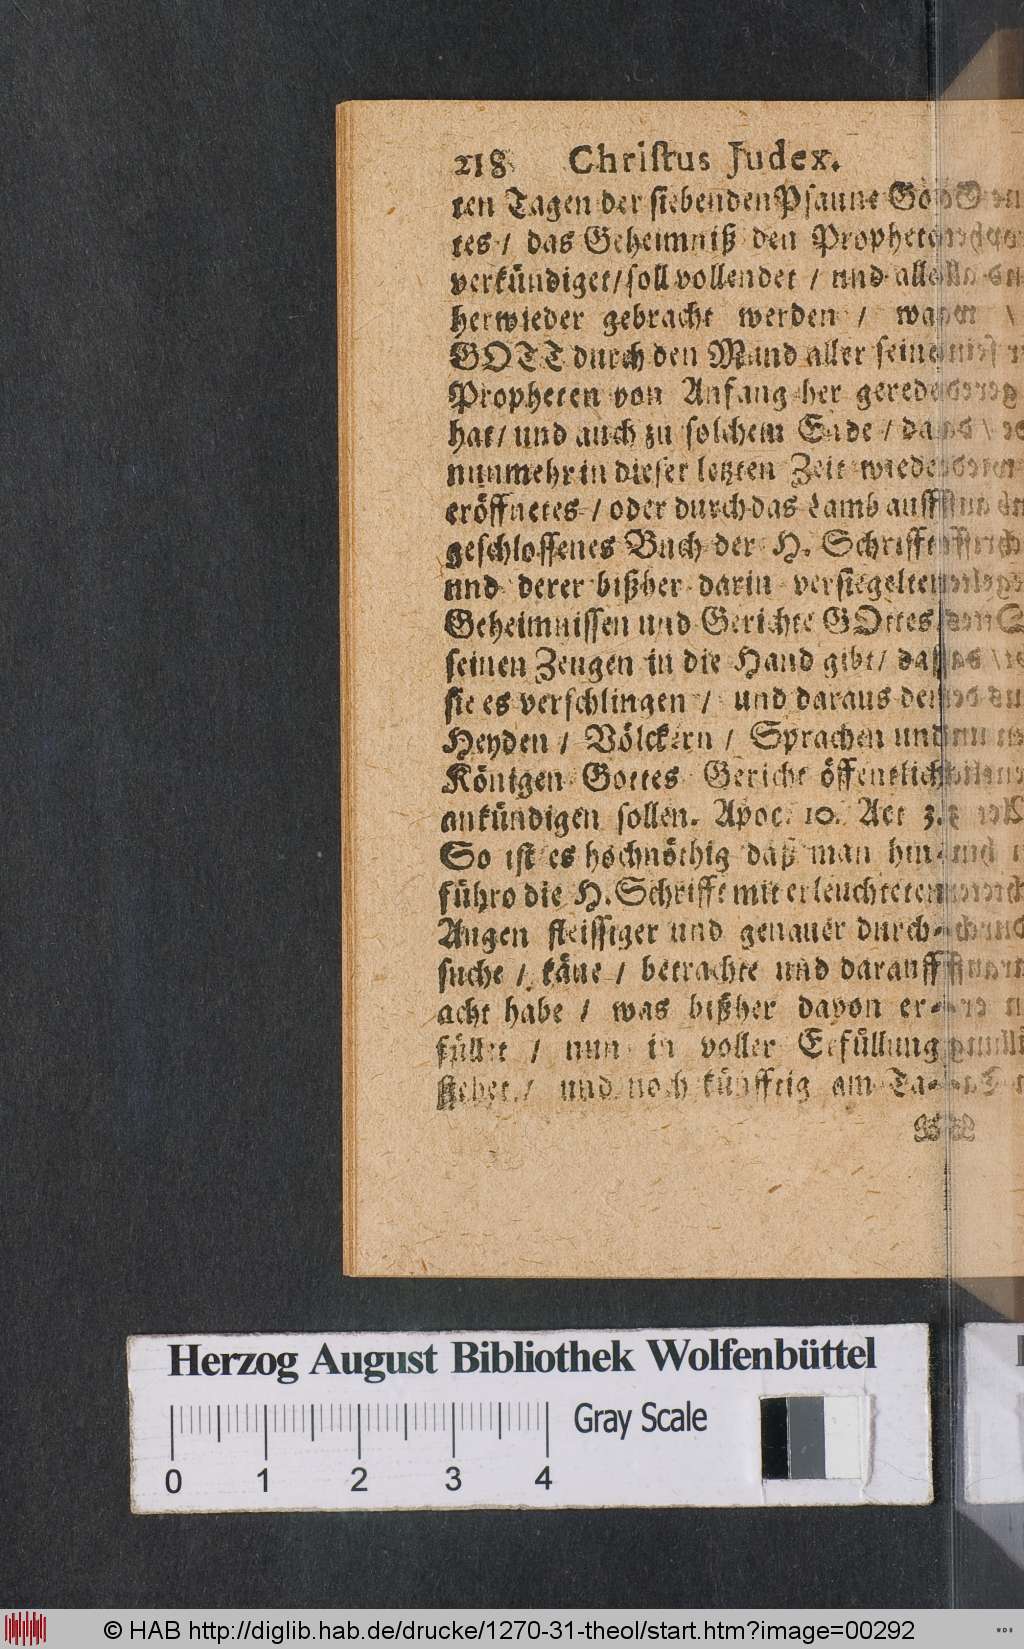 218 Christus Judex.
ten Tagen der siebenden Psaune GOt-
tes / das Geheimniß den Propheten
verkündiget / soll vollendet / und alles
herwieder gebracht werden / wavon
GOTT durch den Mund aller seiner
Propheten von Anfang her geredet
hat / und auch zu solchem Ende / das
nunmehr in dieser letzten Zeit wieder
eröffnetes / oder durch das Lamb auff-
geschlossenes Buch der H. Schrifft
und derer bißher darin versiegelten
Geheimnissen und Gerichte GOttes
seinen Zeugen in die Hand gibt / daß
sie es verschlingen / und daraus den
Heyden / Völckern / Sprachen und
Königen Gottes Gericht öffentlich
ankündigen sollen. Apoc. 10. Act 3.
So ist es hochnöthig daß man hin-
führo die H. Schrifft mit erleuchteten
Augen fleissiger und genauer durch-
suche / käue / betrachte und darauff
acht habe / was bißher davon er-
füllet / nun in voller Erfüllung
stehet / und noch künfftig am Ta-
Herzog August Bibliothek Wolfenbüttel
Gray Scale
0 1 2 3 4
© HAB http://diglib.hab.de/drucke/1270-31-theol/start.htm?image=00292